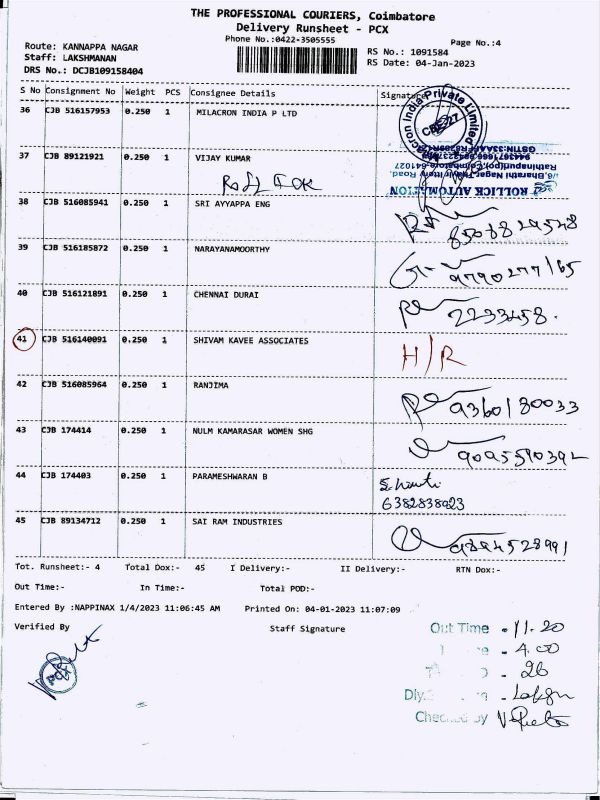 THE PROFESSIONAL COURIERS, Coimbatore
Delivery Runsheet - PCX
Phone No.:0422-3505555
Page No.:4
Route: KANNAPPA NAGAR
Staff: LAKSHMANAN
DRS No.: DCJB109158404
RS No.: 1091584
RS Date: 04-Jan-2023
S No Consignment No Weight PCS Consignee Details Signature
36 CJB 516157953 0.250 1 MILACRON INDIA P LTD
37 CJB 89121921 0.250 1 VIJAY KUMAR
ROLLICK AUTOMATION
38 CJB 516085941 0.250 1 SRI AYYAPPA ENG
39 CJB 516185872 0.250 1 NARAYANAMOORTHY
9790277165
40 CJB 516121891 0.250 1 CHENNAI DURAI
2233458.
41 CJB 516140091 0.250 1 SHIVAM KAVEE ASSOCIATES
H/R
42 CJB 516085964 0.250 1 RANJIMA
9360180033
43 CJB 174414 0.250 1 NULM KAMARASAR WOMEN SHG
9095590392
44 CJB 174403 0.250 1 PARAMESHWARAN B
6382838923
45 CJB 89134712 0.250 1 SAI RAM INDUSTRIES
9894528991
Tot. Runsheet:- 4 Total Dox:- 45 I Delivery:- II Delivery:- RTN Dox:-
Out Time:- In Time:- Total POD:-
Entered By :NAPPINAX 1/4/2023 11:06:45 AM Printed On: 04-01-2023 11:07:09
Verified By Staff Signature
Out Time - 11.20
- 4.00
- 26
Checked by